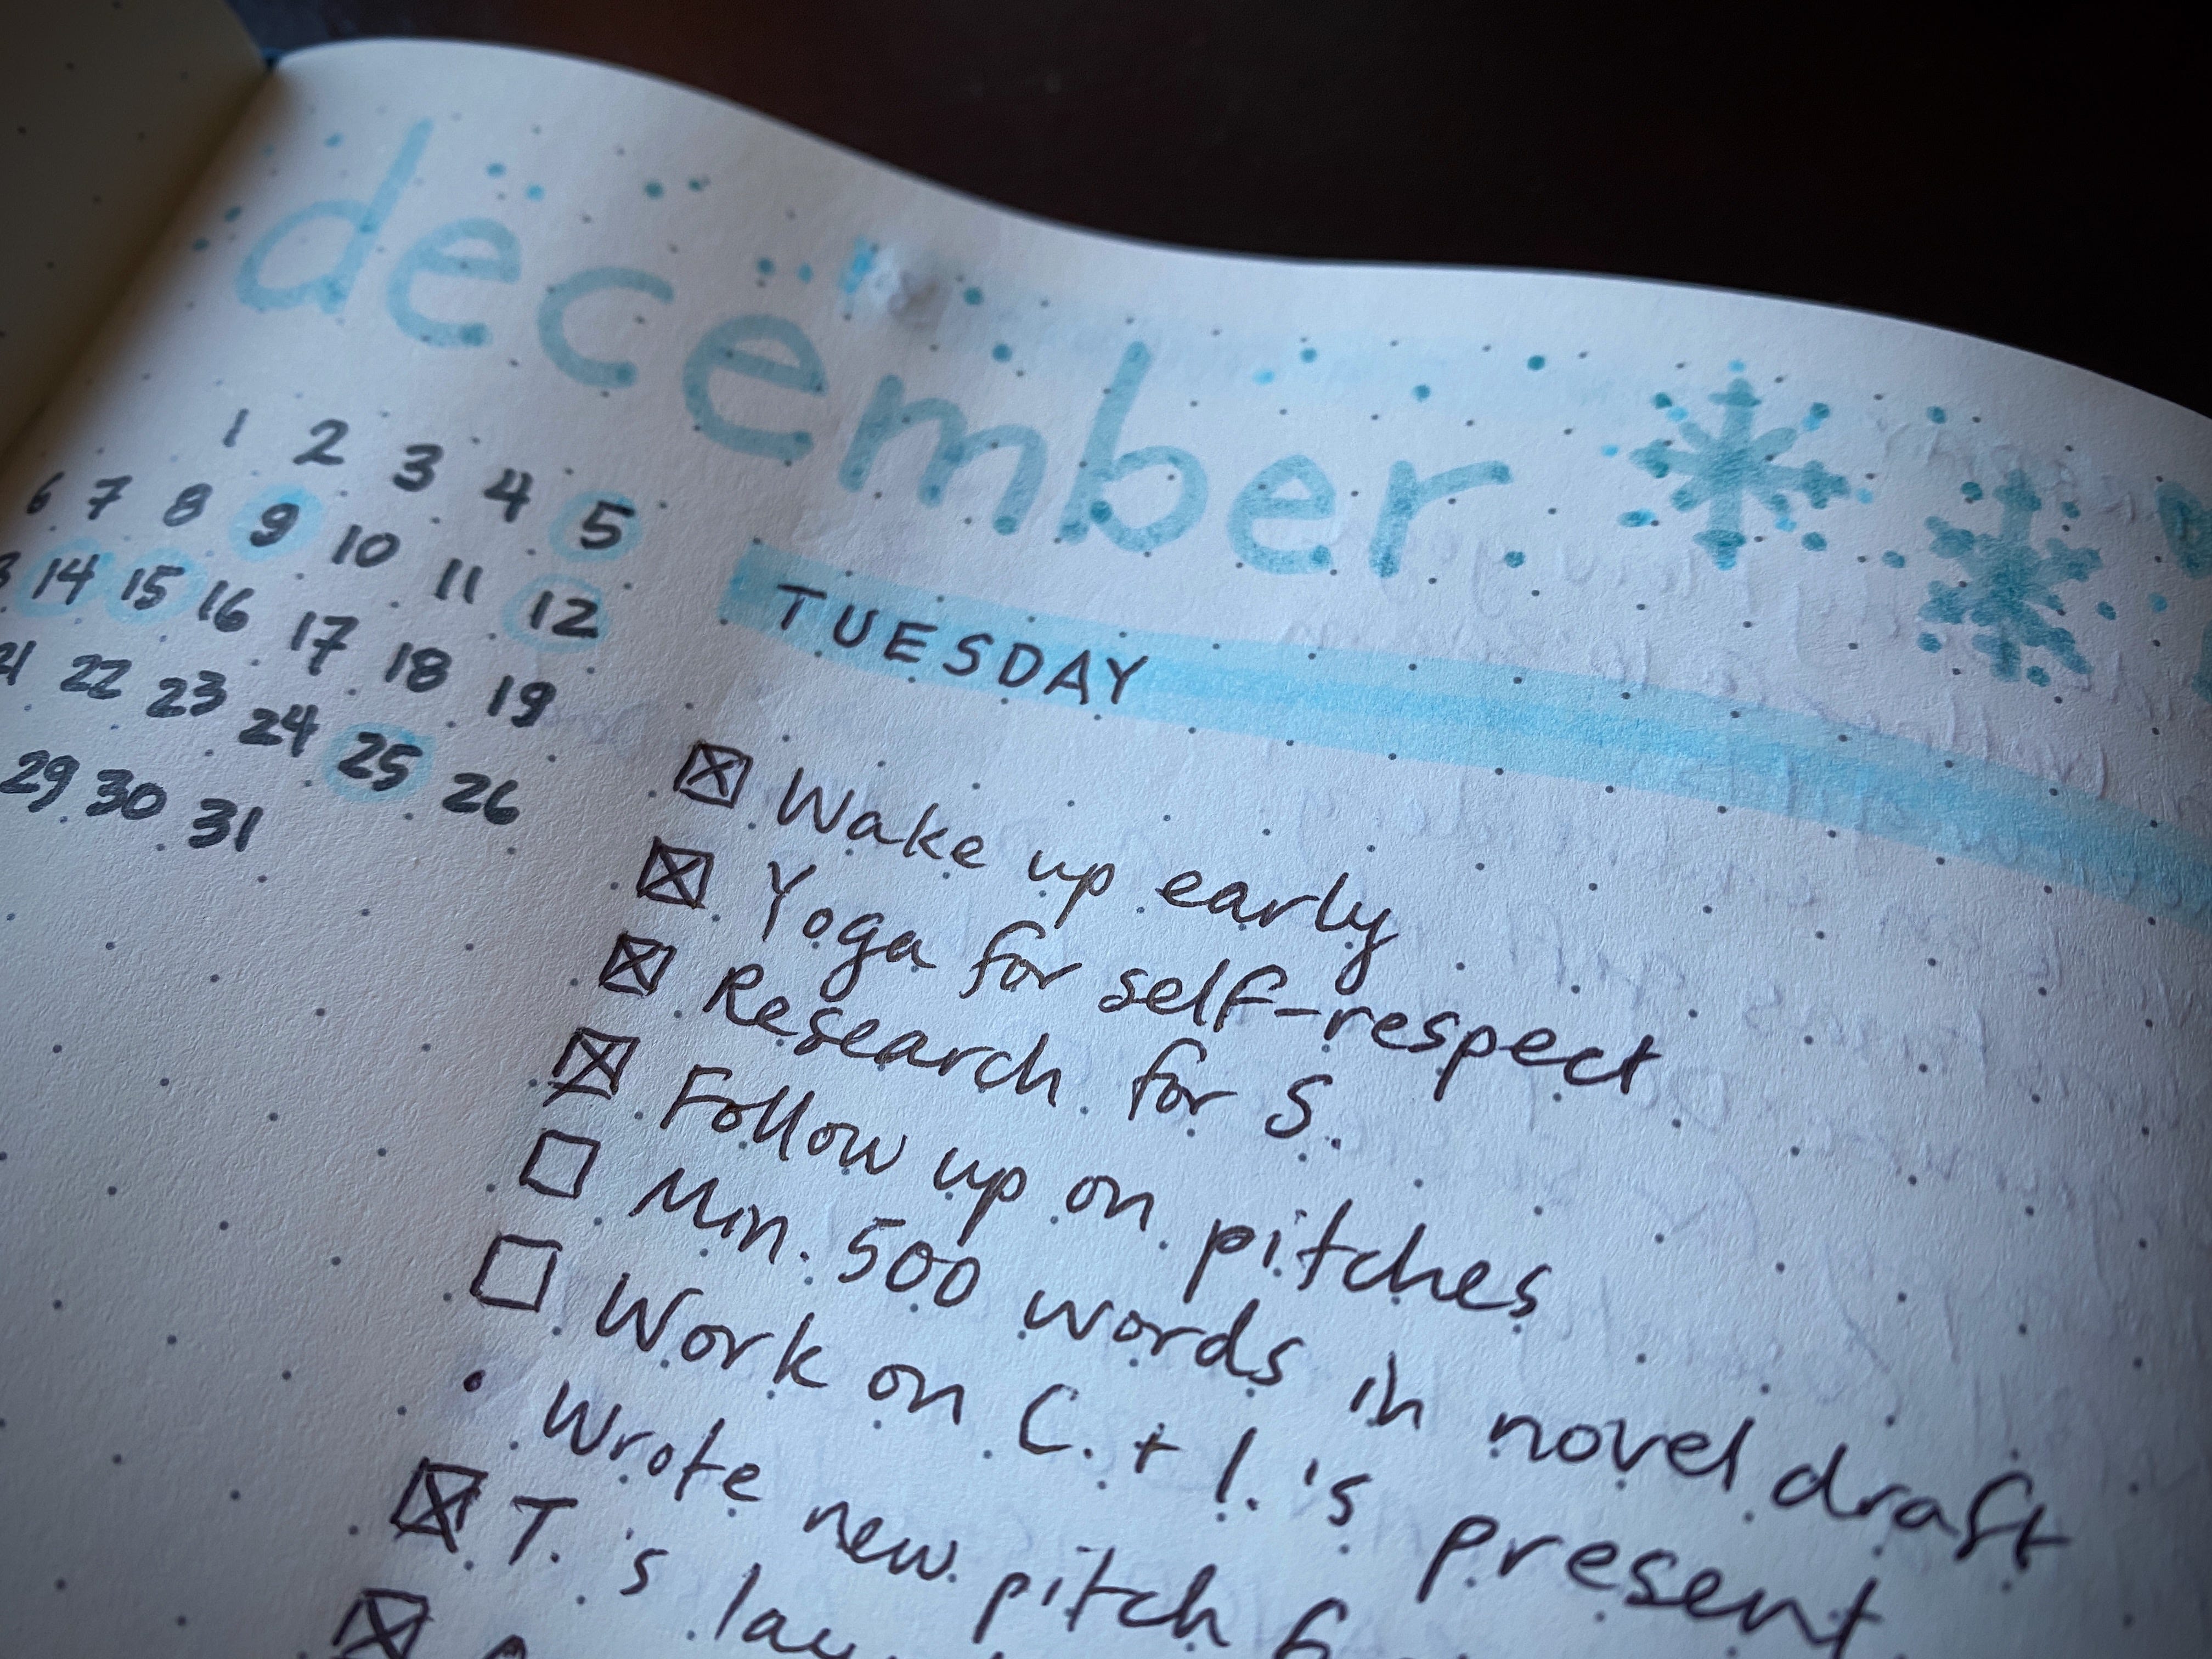 december
1 2 3 4 5
6 7 8 9 10 11 12
14 15 16 17 18 19
21 22 23 24 25 26
29 30 31
TUESDAY
Wake up early
Yoga for self-respect
Research for S.
Follow up on pitches
Min. 500 words in novel draft
Work on C. + I.'s present
• Wrote new pitch
T.'s